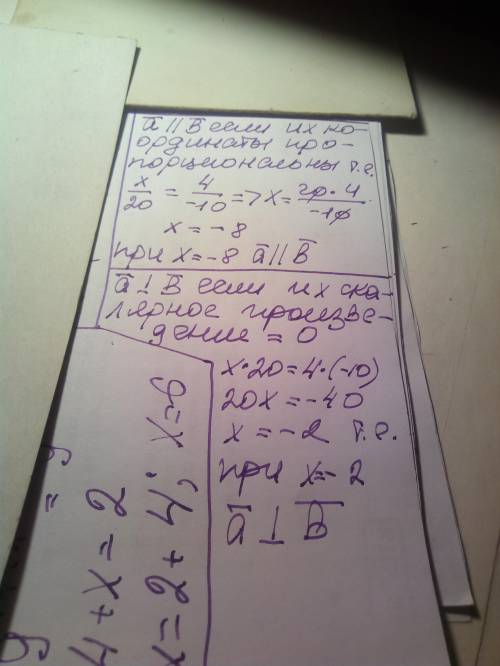 ā || B̄ если их ко-
ординаты про-
порциональны т.е.
x/20 = 4/-10 => x = 20·4/-10
x = -8
при x = -8 ā || B̄
ā ⊥ B̄ если их ска-
лярное произве-
дение = 0
x·20 = 4·(-10)
20x = -40
x = -2 т.е.
при x = -2
ā ⊥ B̄
= y
4 + x = 2
x = 2 + 4; x = 6